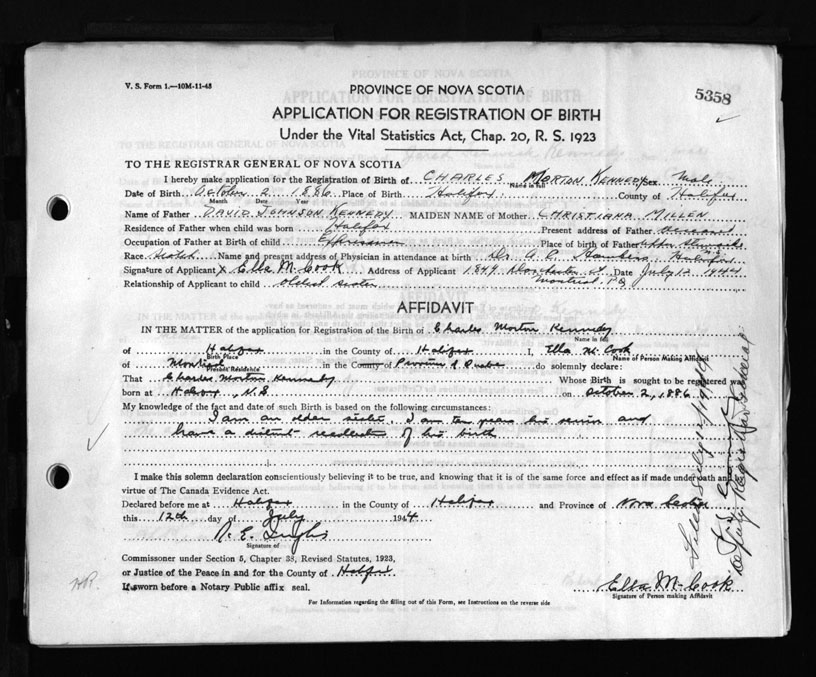 V. S. Form 1.—10M-11-43
PROVINCE OF NOVA SCOTIA
5358
APPLICATION FOR REGISTRATION OF BIRTH
Under the Vital Statistics Act, Chap. 20, R. S. 1923
TO THE REGISTRAR GENERAL OF NOVA SCOTIA
I hereby make application for the Registration of Birth of CHARLES MORTON KENNEDY Sex Male
Name in full
Date of Birth October 2 1886 Place of Birth Halifax County of Halifax
Month Date Year
Name of Father DAVID JOHNSON KENNEDY MAIDEN NAME of Mother CHRISTIANA MILLEN
Residence of Father when child was born Halifax Present address of Father Deceased
Occupation of Father at Birth of child Place of Birth of Father
Race Scotch Name and present address of Physician in attendance at birth Dr. A. C. Hawkins Halifax
Signature of Applicant X Ella M. Cook Address of Applicant 1849 Dorchester St Date July 12 1944
Relationship of Applicant to child oldest sister Montreal P.Q.
AFFIDAVIT
IN THE MATTER of the application for Registration of the Birth of Charles Morton Kennedy
Name in full
of Halifax in the County of Halifax I, Ella M. Cook
Birth Place Name of Person Making Affidavit
of Montreal in the County of Province of Quebec do solemnly declare:
Present Residence
That Charles Morton Kennedy Whose Birth is sought to be registered was
born at Halifax, N.S. on October 2, 1886
My knowledge of the fact and date of such Birth is based on the following circumstances:
I am an older sister. I am ten years his senior and
have a distinct recollection of his birth
I make this solemn declaration conscientiously believing it to be true, and knowing that it is of the same force and effect as if made under oath and
virtue of The Canada Evidence Act.
Declared before me at Halifax in the County of Halifax and Province of Nova Scotia
this 12th day of July 1944
Signature of
Commissoner under Section 5, Chapter 38, Revised Statutes, 1923,
or Justice of the Peace in and for the County of Halifax
If sworn before a Notary Public affix seal.
Ella M. Cook
Signature of Person making Affidavit
For Information regarding the filling out of this Form, see Instructions on the reverse side
Filed July 12/1944
Deputy Registrar General